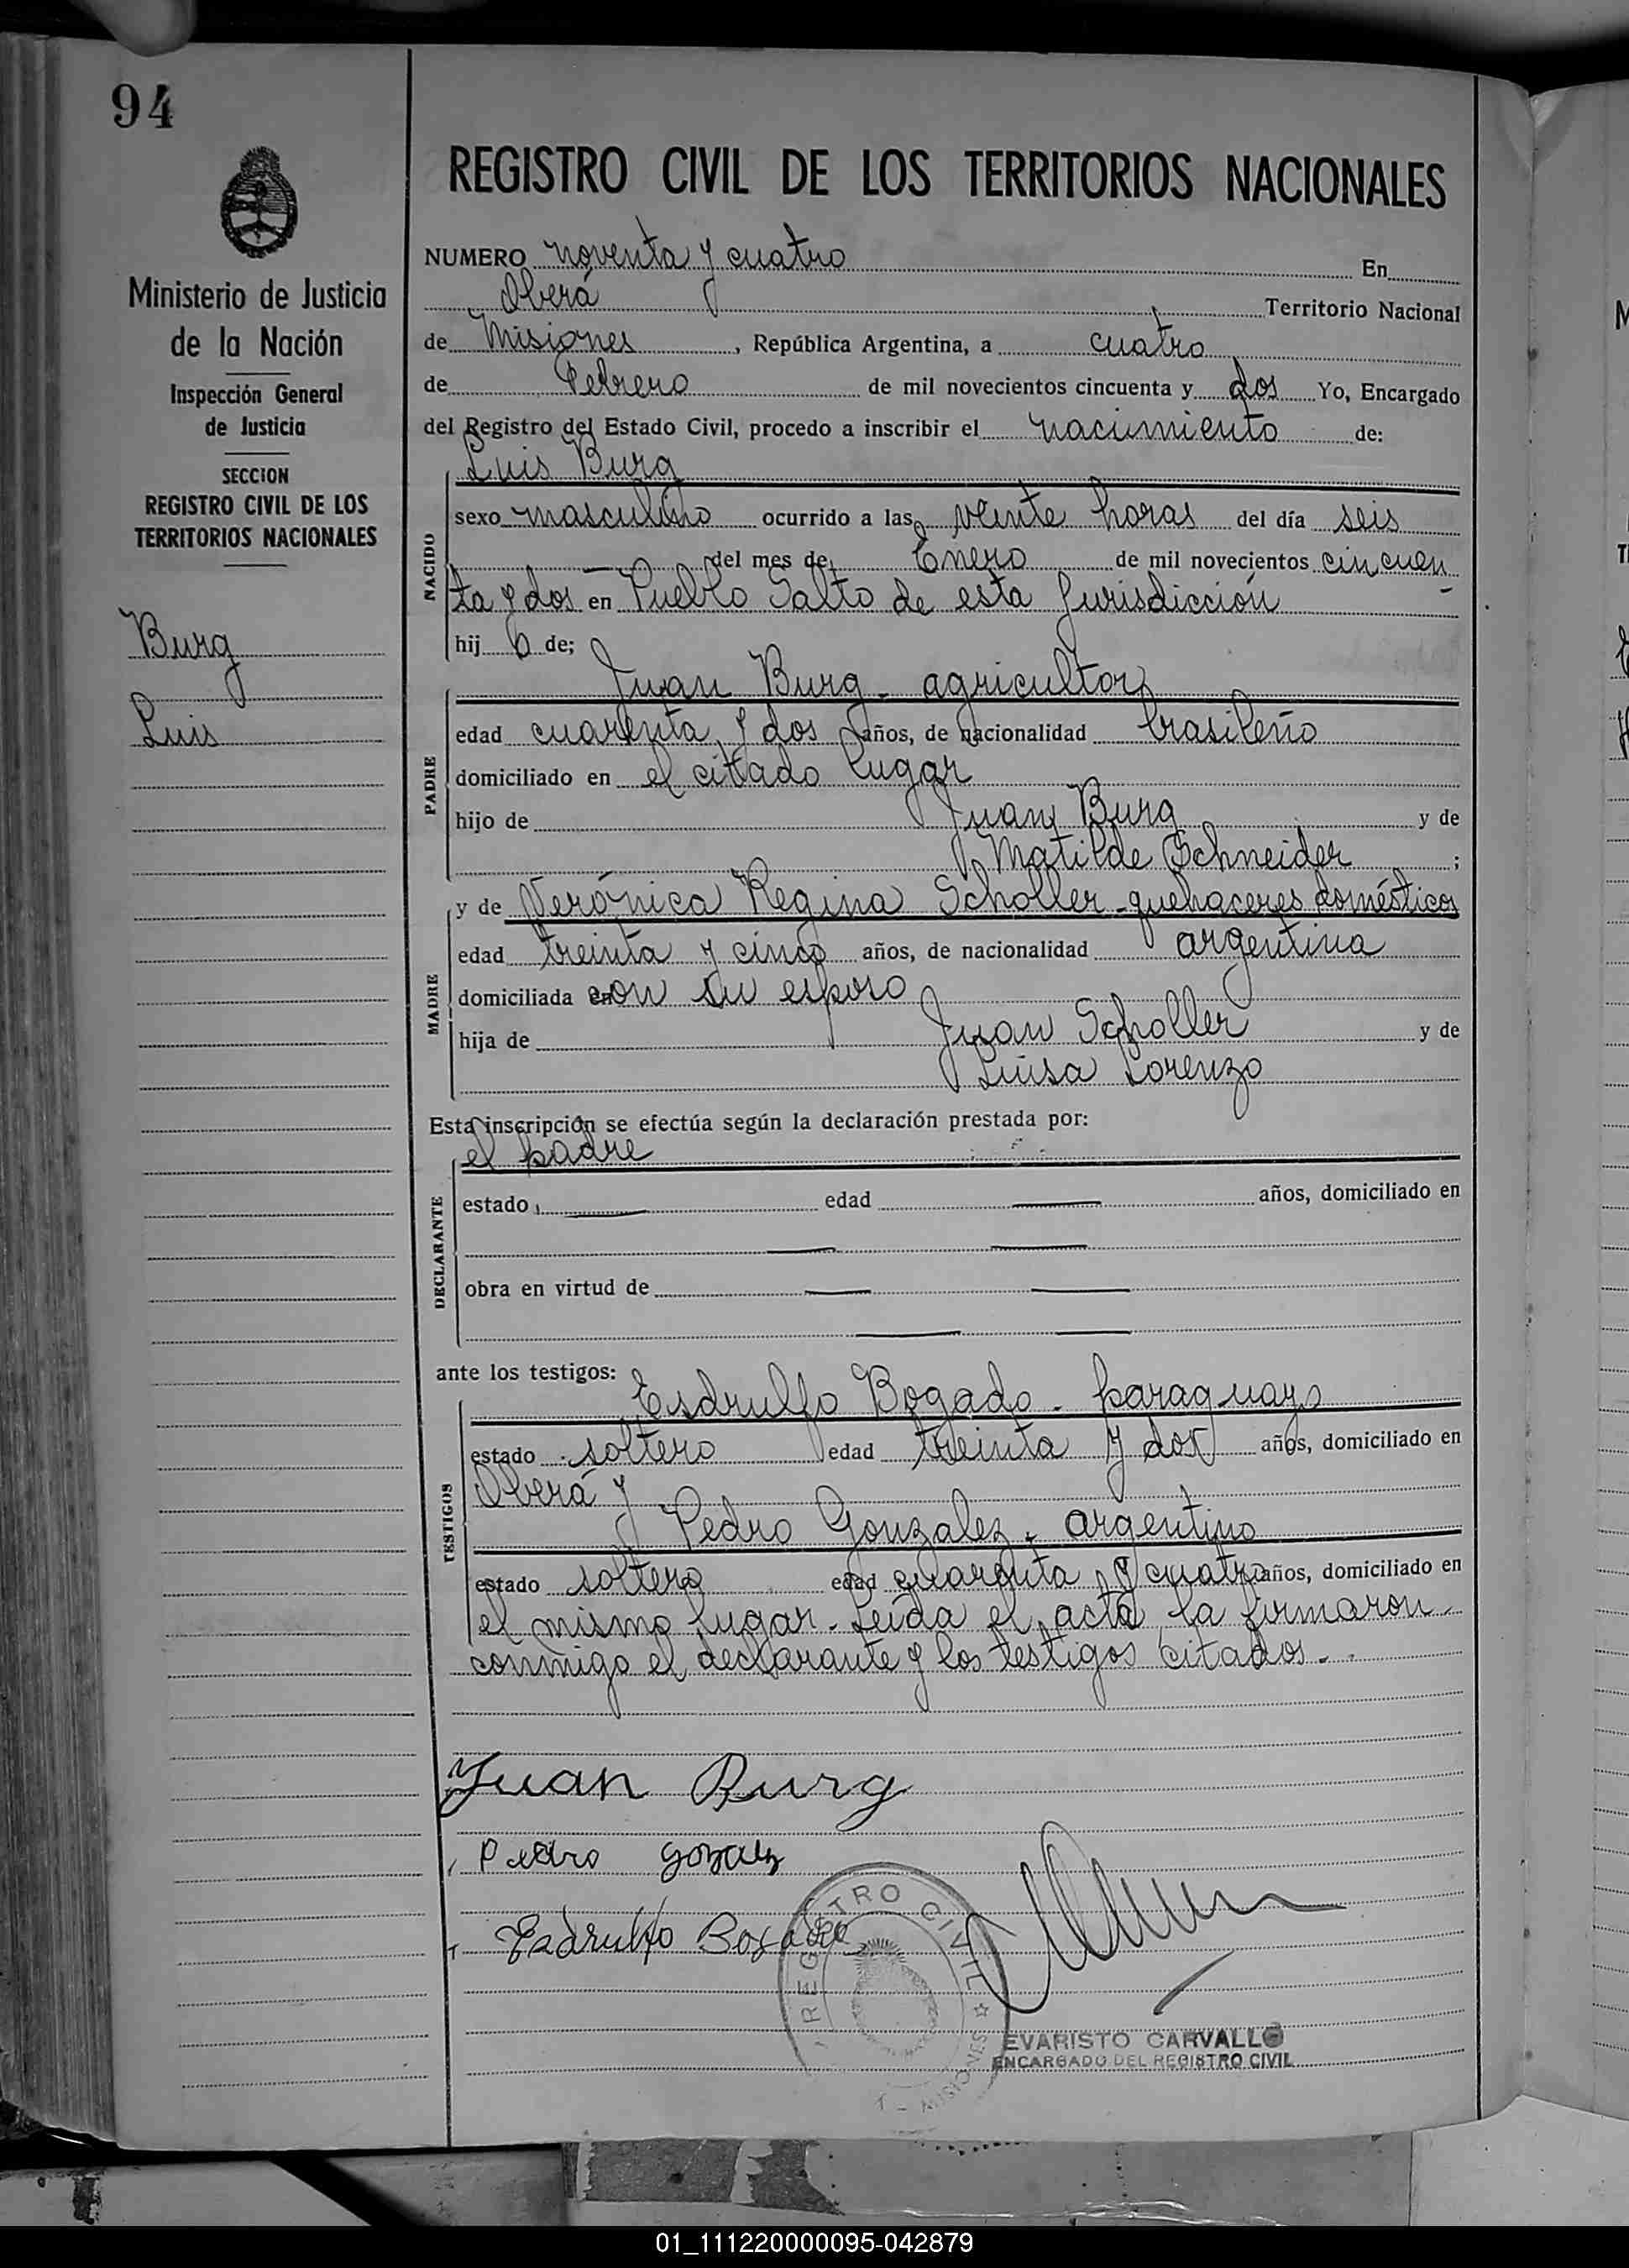 94
REGISTRO CIVIL DE LOS TERRITORIOS NACIONALES
Ministerio de Justicia
de la Nación
Inspección General
de Justicia
SECCION
REGISTRO CIVIL DE LOS
TERRITORIOS NACIONALES
Burg
Luis
NUMERO noventa y cuatro En
Oberá Territorio Nacional
de Misiones, República Argentina, a cuatro
de Febrero de mil novecientos cincuenta y dos Yo, Encargado
del Registro del Estado Civil, procedo a inscribir el nacimiento de:
Luis Burg
NACIDO
sexo masculino ocurrido a las veinte horas del día seis
del mes de Enero de mil novecientos cincuen
ta y dos en Pueblo Salto de esta Jurisdicción
hij o de;
Juan Burg - agricultor
PADRE
edad cuarenta y dos años, de nacionalidad brasileño
domiciliado en el citado lugar
hijo de Juan Burg y de
Matilde Schneider ;
y de Verónica Regina Scholler - quehaceres domésticos
MADRE
edad treinta y cinco años, de nacionalidad argentina
domiciliada en con su esposo
hija de Juan Scholler y de
Luisa Lorenzo
Esta inscripción se efectúa según la declaración prestada por:
el padre
DECLARANTE
estado edad años, domiciliado en
obra en virtud de
ante los testigos:
Esdrulfo Bogado - paraguayo
TESTIGOS
estado soltero edad treinta y dos años, domiciliado en
Oberá y
Pedro Gonzalez - argentino
estado soltero edad cuarenta y cuatro años, domiciliado en
el mismo lugar - Leída el acta la firmaron
conmigo el declarante y los testigos citados.
Juan Burg
Pedro Gozalz
Esdrulfo Bogado
REGISTRO CIVIL
MISIONES
EVARISTO CARVALLO
ENCARGADO DEL REGISTRO CIVIL
01_111220000095-042879